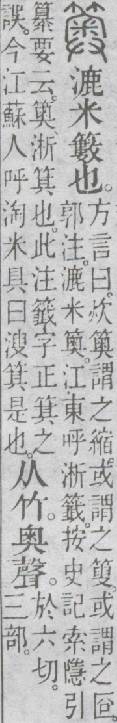 䉛 漉米籔也。
方言曰。炊䉛謂之縮。或謂之䈹。或謂之㔯。
郭注。漉米䉛。江東呼淅籤。按史記索隱引
纂要云。䉛淅箕也。此注籤字正箕之
誤。今江蘇人呼淘米具曰溲箕是也。
从竹。奧聲。
於六切。
三部。